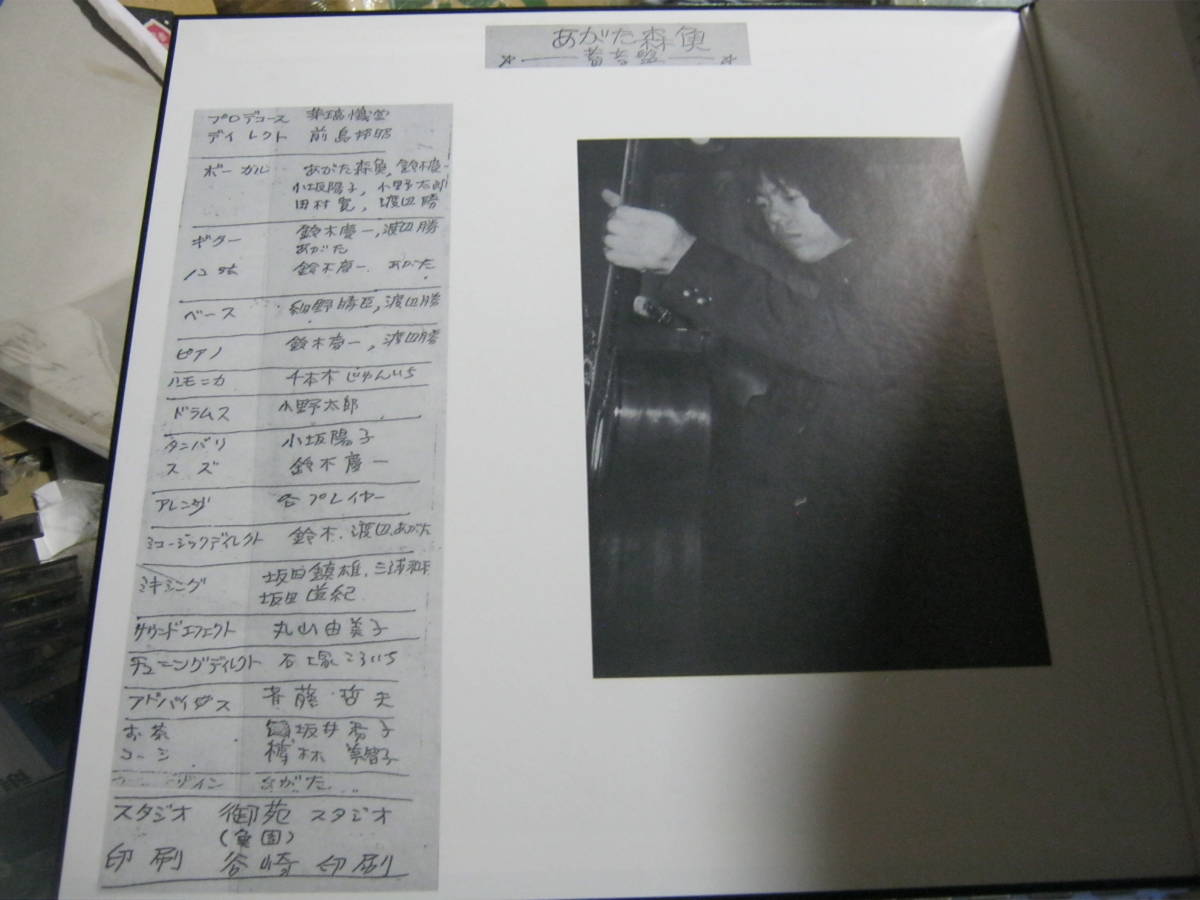 あがた森魚
☆——蓄音盤——☆
プロデュース
ディレクト 前島邦昭
ボーカル あがた森魚, 鈴木慶一
小坂陽子, 小野太郎
田村寛, 渡辺勝
ギター 鈴木慶一, 渡辺勝
あがた
ハコ弦 鈴木慶一. あがた
ベース 細野晴臣, 渡辺勝
ピアノ 鈴木慶一, 渡辺勝
ハモニカ 千本木じゅんいち
ドラムス 小野太郎
タンバリ 小坂陽子
スズ 鈴木慶一
アレンヂ 各プレイヤー
ミュージックディレクト 鈴木. 渡辺. あがた
ミキシング 坂田鎮雄. 三浦
坂田道紀
サウンドエフェクト 丸山由美子
チューニングディレクト 石塚こういち
アドバイザス 斉藤哲夫
お茶 坂井
コーシ
ザイン あがた
スタジオ 御苑スタジオ
(魚園)
印刷 谷崎印刷